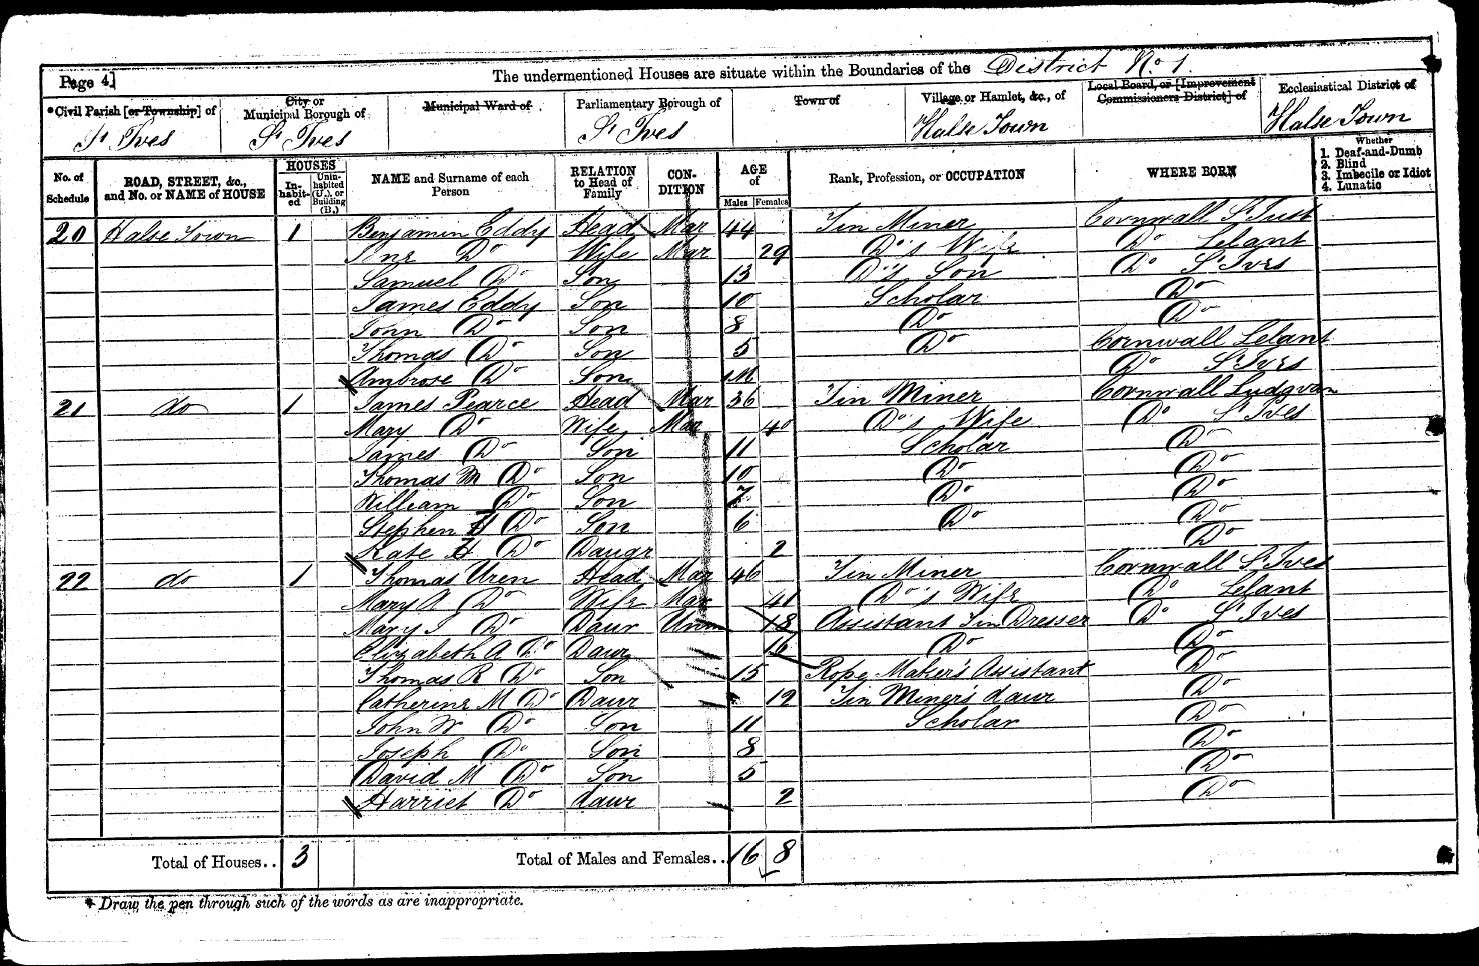 Page 4]
The undermentioned Houses are situate within the Boundaries of the District No. 1.
*Civil Parish [or Township] of St Ives
City or Municipal Borough of St Ives
Municipal Ward of
Parliamentary Borough of St Ives
Town of
Village or Hamlet, &c., of Halse Town
Local Board, or [Improvement Commissioners District] of
Ecclesiastical District of Halse Town
No. of Schedule
ROAD, STREET, &c., and No. or NAME of HOUSE
HOUSES
In-habit-ed
Unin-habited (U.), or Building (B.)
NAME and Surname of each Person
RELATION to Head of Family
CON-DITION
AGE of
Males
Females
Rank, Profession, or OCCUPATION
WHERE BORN
Whether
1. Deaf-and-Dumb
2. Blind
3. Imbecile or Idiot
4. Lunatic
20 Halse Town 1 Benjamin Eddy Head Mar 44 Tin Miner Cornwall St Just
Jane Do Wife Mar 29 Do's Wife Do Lelant
Samuel Do Son 13 Do's Son Do St Ives
James Eddy Son 10 Scholar Do
John Do Son 8 Do Do
Thomas Do Son 5 Do Cornwall Lelant
Ambrose Do Son Do St Ives
21 do 1 James Pearce Head Mar 36 Tin Miner Cornwall Ludgvan
Mary Do Wife Mar 40 Do's Wife Do St Ives
James Do Son 11 Scholar Do
Thomas M Do Son 10 Do Do
William Do Son 7 Do Do
Stephen H Do Son 6 Do Do
Kate H Do Daugr 2 Do
22 do 1 Thomas Uren Head Mar 46 Tin Miner Cornwall St Ives
Mary A Do Wife Mar 41 Do's Wife Do Lelant
Mary J Do Daur Unm 18 Assistant Tin Dresser Do St Ives
Elizabeth A Do Daur 16 Do Do
Thomas R Do Son 15 Rope Maker's Assistant Do
Catherine M Do Daur 12 Tin Miner's daur Do
John W Do Son 11 Scholar Do
Joseph Do Son 8 Do
David M Do Son 5 Do
Harriet Do daur 2 Do
Total of Houses.. 3
Total of Males and Females.. 16 8
* Draw the pen through such of the words as are inappropriate.